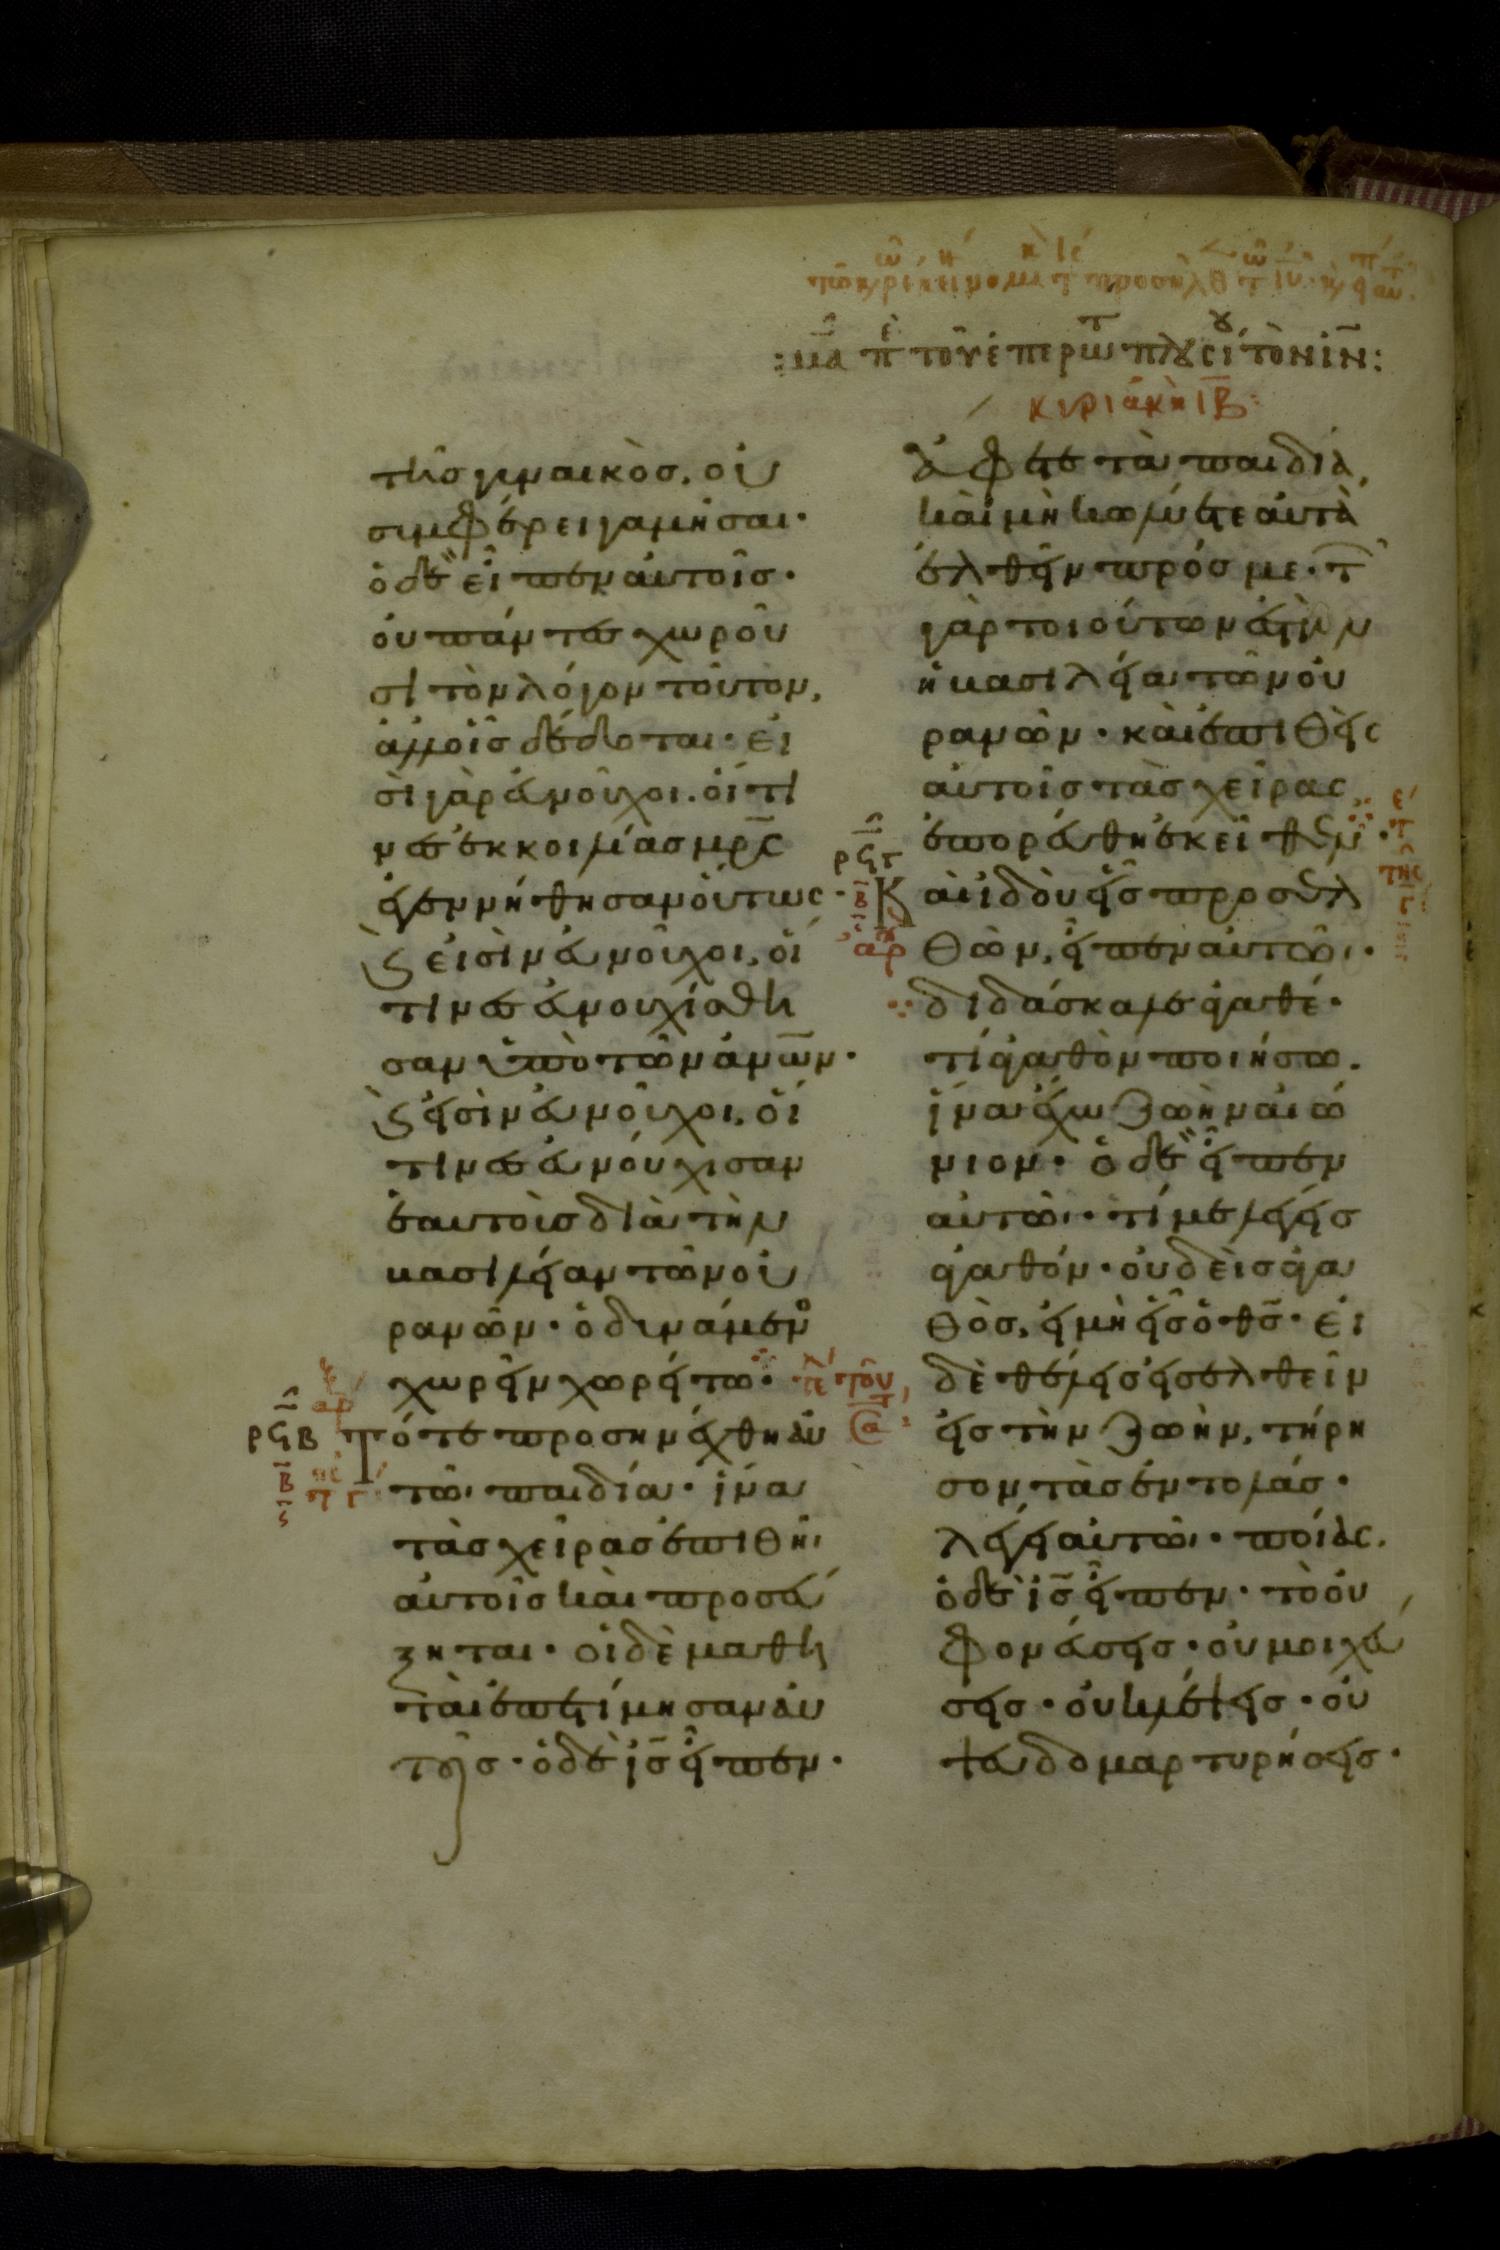 μα πε τοῦ ἐπερωτ πλουσί τὸν ιν :
κυριακὴ ιβ :
τῆς γυναικὸσ, οὐ
συμφέρει γαμῆσαι·
ὁ δὲ εἶπεν αὐτοῖσ·
οὐ πάντεσ χωροῦ
σι τὸν λόγον τοῦτον,
ἀλλ οἷσ δέδοται· εἰ
σὶ γὰρ εὐνοῦχοι. οἵτι
νεσ ἐκ κοιλίασ μρ̅ς
ἐγεννήθησαν οὕτως·
ϗ εἰσὶν εὐνοῦχοι, οἵ
τινεσ εὐνουχίσθη
σαν ὑπὸ τῶν ἀνω̅ν·
ϗ εἰσὶν εὐνοῦχοι, οἵ
τινεσ εὐνούχισαν
ἑαυτοὺσ διὰ τὴν
βασιλείαν τῶν οὐ
ρανῶν· ὁ δυνάμενο
χωρεῖν χωρείτω·
ρϟβ Τότε προσηνέχθη αὐ
τῶ παιδία· ἵνα
τὰσ χεῖρασ ἐπιθῆ
αὐτοῖσ καὶ προσεύ
ξηται· οἱ δὲ μαθη
ταὶ ἐπετίμησαν αὐ
τοῖσ· ὁ δὲ ισ̅ εἶπεν·
ἄφετε τὰ παιδία,
καὶ μὴ κωλύετε αὐτὰ
ἐλθεῖν πρόσ με· τ
γὰρ τοιούτων ἐστὶν
ἡ βασιλεία τῶν οὐ
ρανῶν· καὶ ἐπιθεὶς
αὐτοῖσ τὰσ χεῖρας
ἐπορεύθη ἐκεῖθεν·
ρϟγ Καὶ ἰδοὺ εἷσ προσελ
θὼν, εἶπεν αὐτῶ·
διδάσκαλε ἀγαθέ·
τί ἀγαθὸν ποιήσω.
ἵνα ἔχω ζωὴν αἰώ
νιον· ὁ δὲ εἶπεν
αὐτῶ· τί με λέγεισ
ἀγαθόν· οὐδεὶσ ἀγα
θὸσ, εἰ μὴ εἷσ ὁ θσ̅· εἰ
δὲ θέλεισ εἰσελθεῖν
εἰσ τὴν ζωὴν, τήρη
σον τὰσ ἐντολάσ·
λέγει αὐτῶ· ποίας.
ὁ δὲ ισ̅ εἶπεν· τὸ οὐ
φονεύσεισ· οὐ μοιχεύ
σεισ· οὐ κλέψεισ· οὐ
ψευδομαρτυρήσεισ·